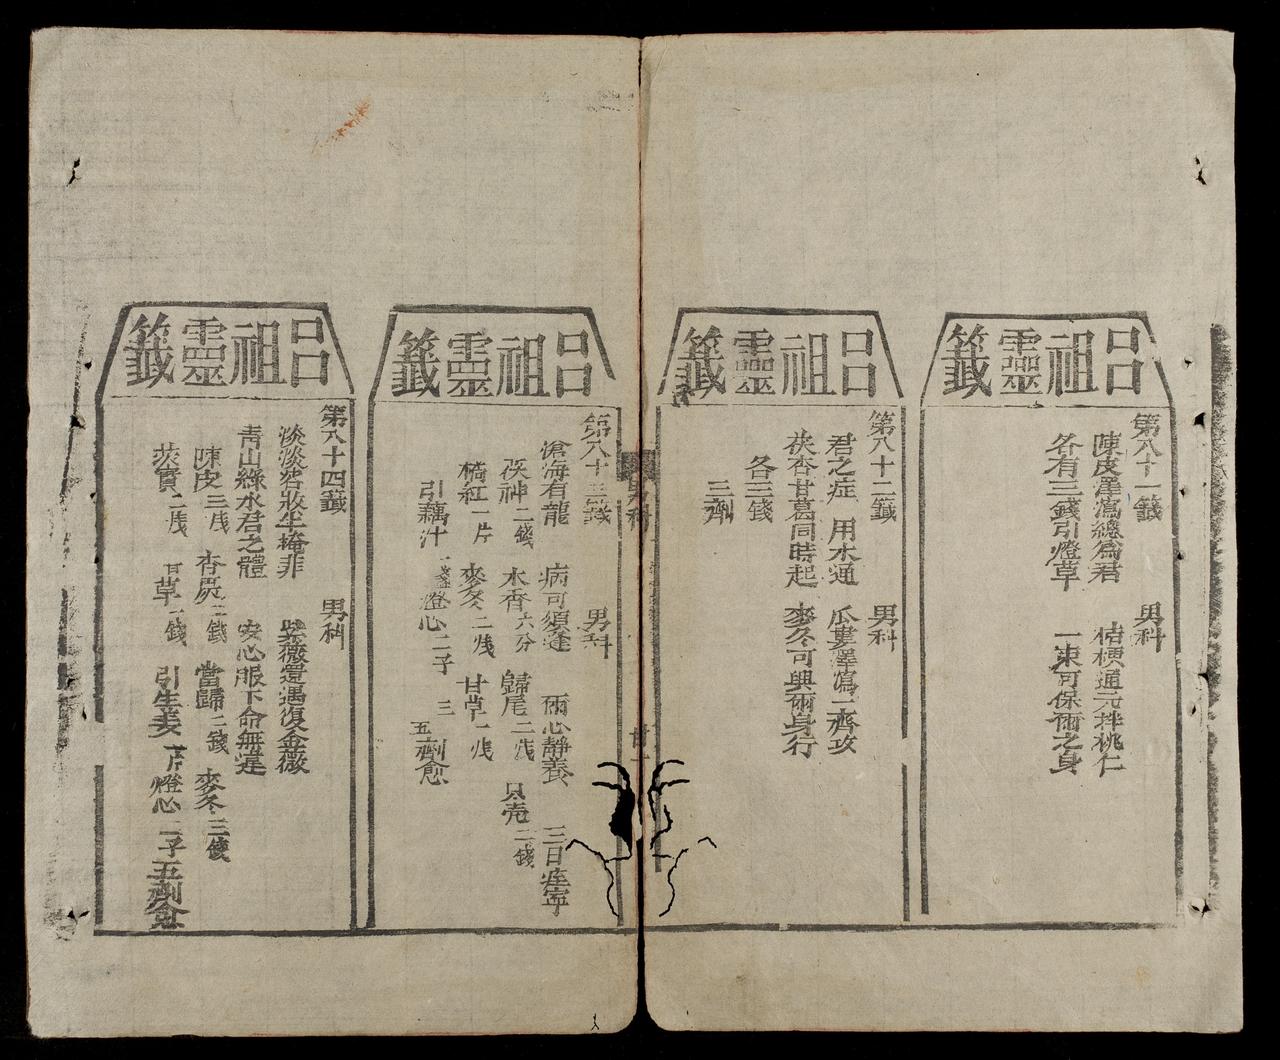 呂祖靈籤
第八十一籤 男科
陳皮澤瀉總為君 桔梗通元拌桃仁
各有三錢引燈草 一束可保爾之身
呂祖靈籤
第八十二籤 男科
君之症 用水通 瓜蔞澤瀉一齊攻
茯苓甘葛同時起 麥冬可與爾身行
各三錢
三劑
男科
廿一
呂祖靈籤
第八十三籤 男科
滄海有龍 病可須逢 爾心靜養 三日
茯神二錢 木香六分 歸尾二戔 只壳二錢
橘紅一片 麥冬二戔 甘草一戔
引藕汁一盞 燈心二子 三五劑愈
呂祖靈籤
第八十四籤 男科
淡淡若妝半掩非 紫薇還遇復金薇
青山綠水君之體 安心服下命無違
陳皮三戔 當歸二錢 麥冬三錢
芡實二戔 甘草一錢 引生姜 燈心二子五劑愈